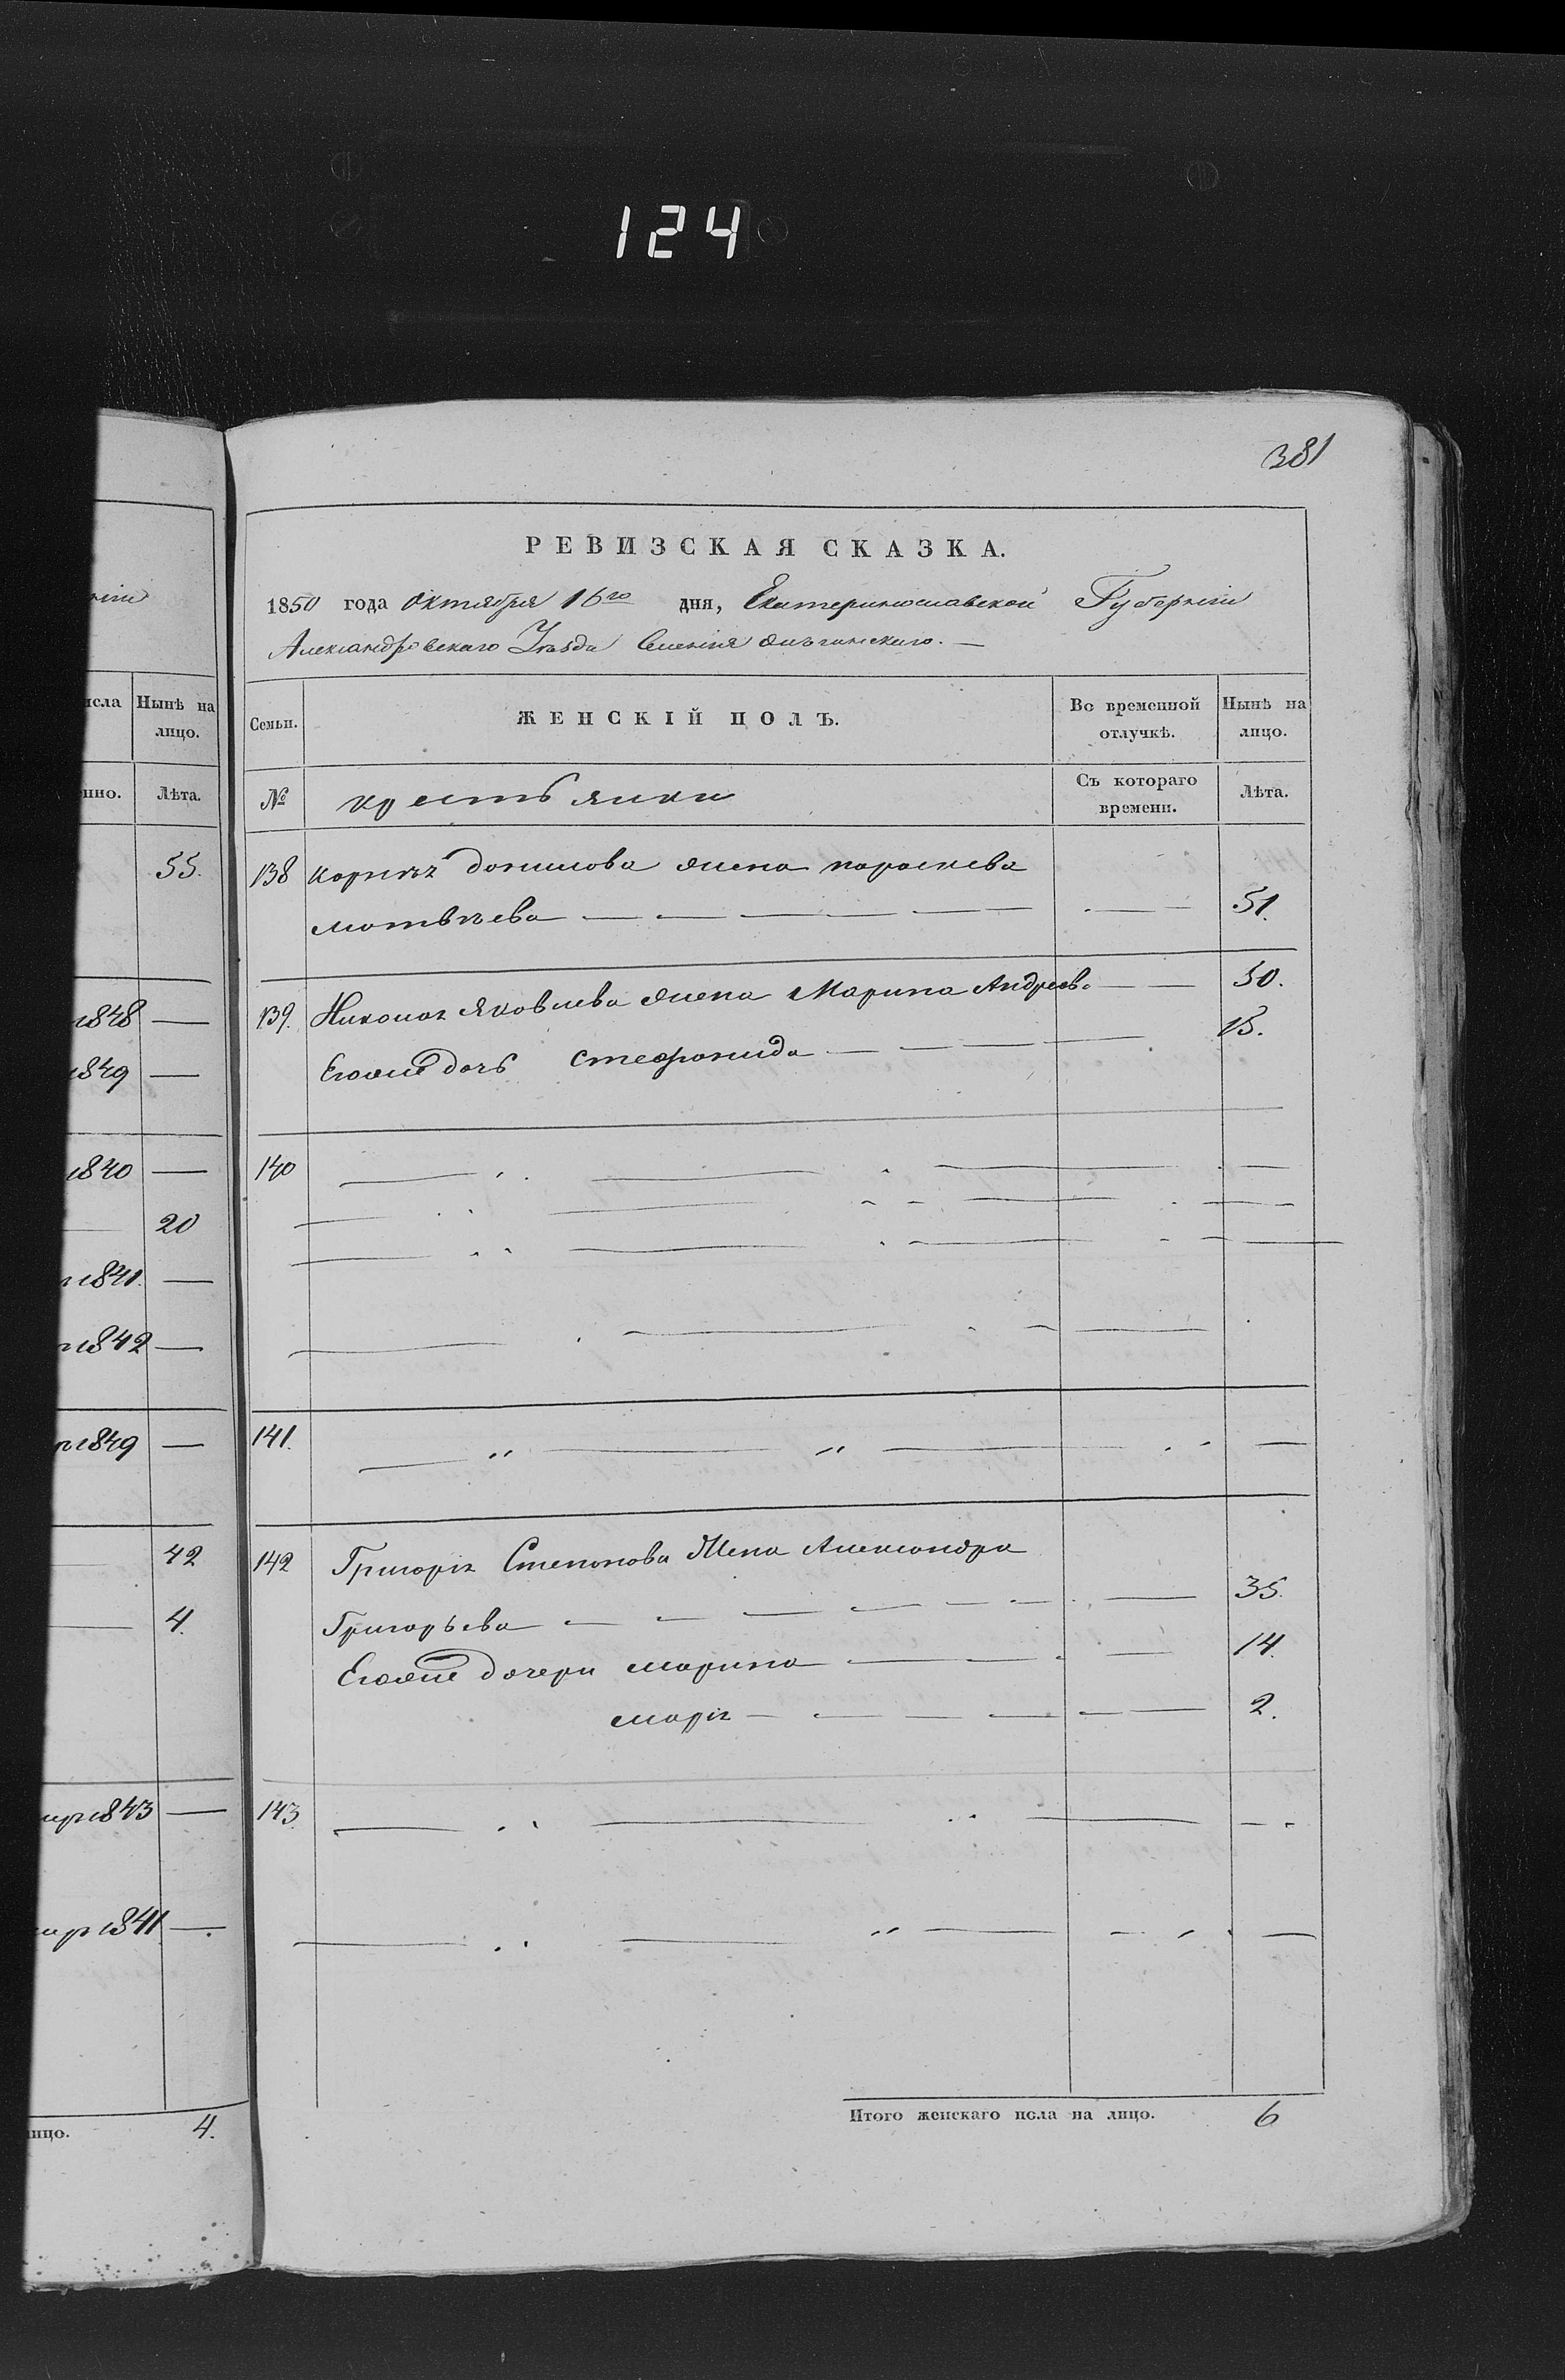 124
381
РЕВИЗСКАЯ СКАЗКА.
1850 года Октября 16го дня, Екатеринославской Губерніи
Александровскаго Уѣзда Селенія
ЖЕНСКІЙ ПОЛЪ.
Семьи.
Во временной отлучкѣ.
Нынѣ на лицо.
№ крестьянки
Съ котораго времени.
Лѣта.
138 Корнѣя Данилова жена Параскева
Матвѣева 51.
139. Николая Яковлева жена Марина Андреева 50.
Егоже дочь Стефанида 13.
140
141.
142 Григорія Степанова Жена Александра
Григорьева 35.
Егоже дочери Марина 14.
Марія 2.
143
Итого женскаго пола на лицо. 6
ніи
исла
Нынѣ на лицо.
нно.
Лѣта.
55.
1848
1849
1840
20
1841.
1842
1849
42
4.
1843
1841
лицо. 4.